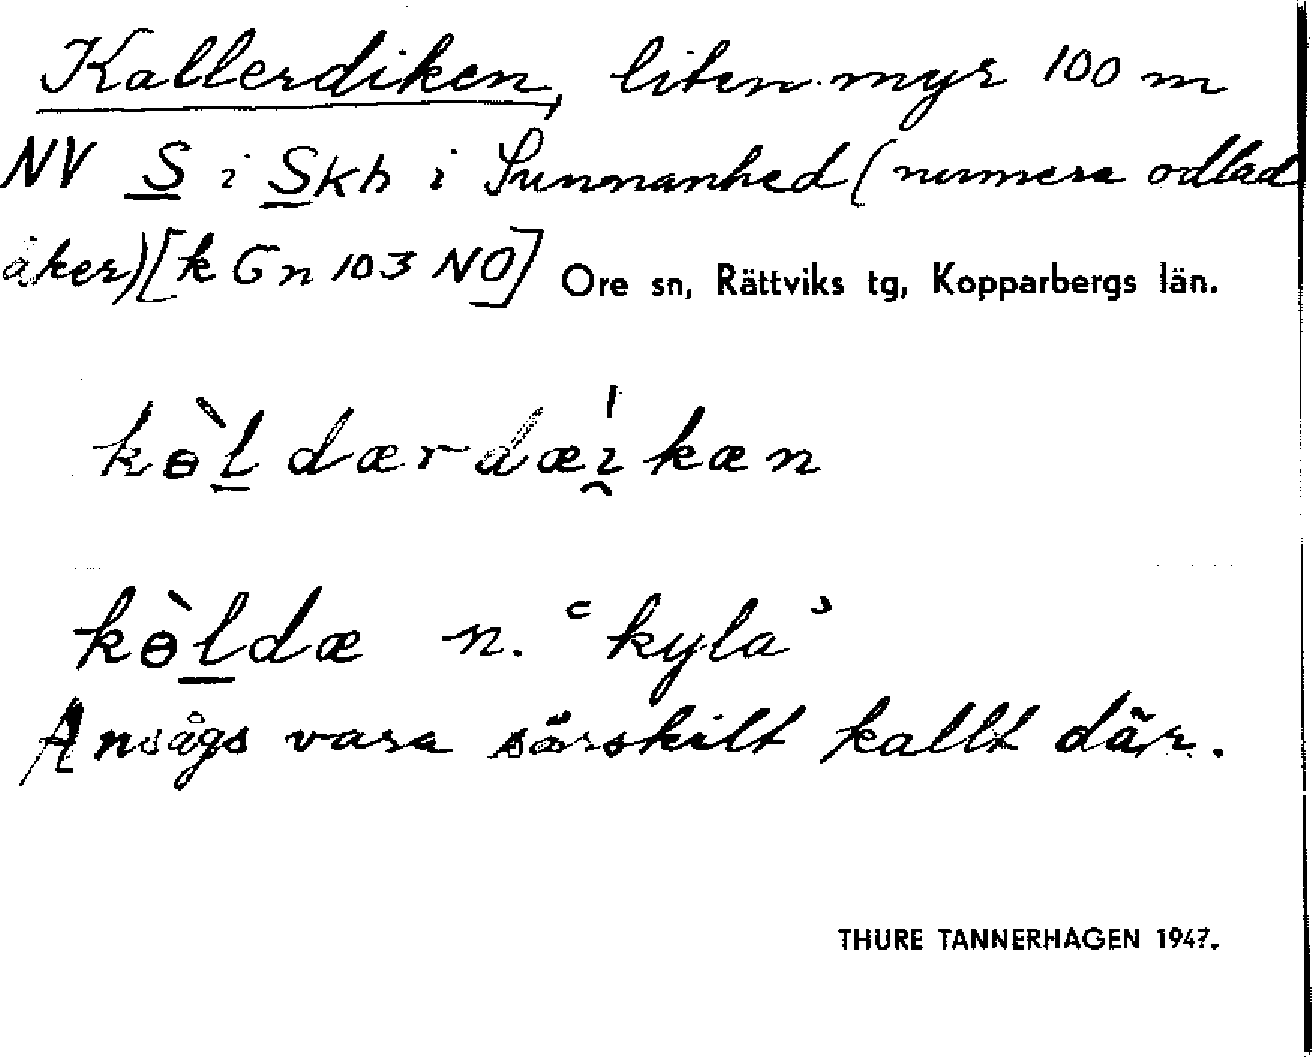 Kallerdiken, liten myr 100 m
NV S i Skb i Sunnanhed (numera odlad
åker) [k Gn 103 NO] Ore sn, Rättviks tg, Kopparbergs län.
kɵ̀l̲dærdæi̯̍kæn
kɵ̀l̲dæ n. ʿkylaʾ
Ansågs vara särskilt kallt där.
THURE TANNERHAGEN 1947.